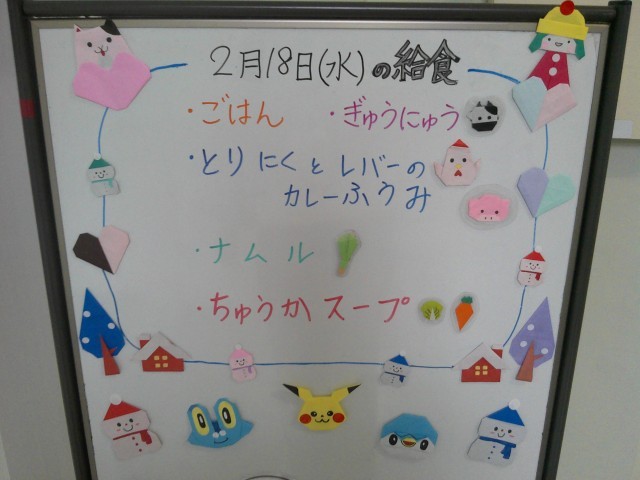 2月18日(水)の給食
・ごはん ・ぎゅうにゅう
・とりにくとレバーの
カレーふうみ
・ナムル
・ちゅうかスープ